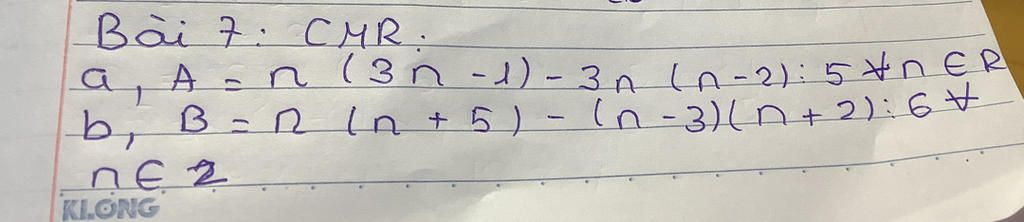 Bài 7: CMR:
a, A = n (3n - 1) - 3n (n-2) ⋮ 5 ∀n ∈ R
b, B = n (n + 5) - (n - 3)(n + 2) ⋮ 6 ∀
n ∈ Z
KLONG